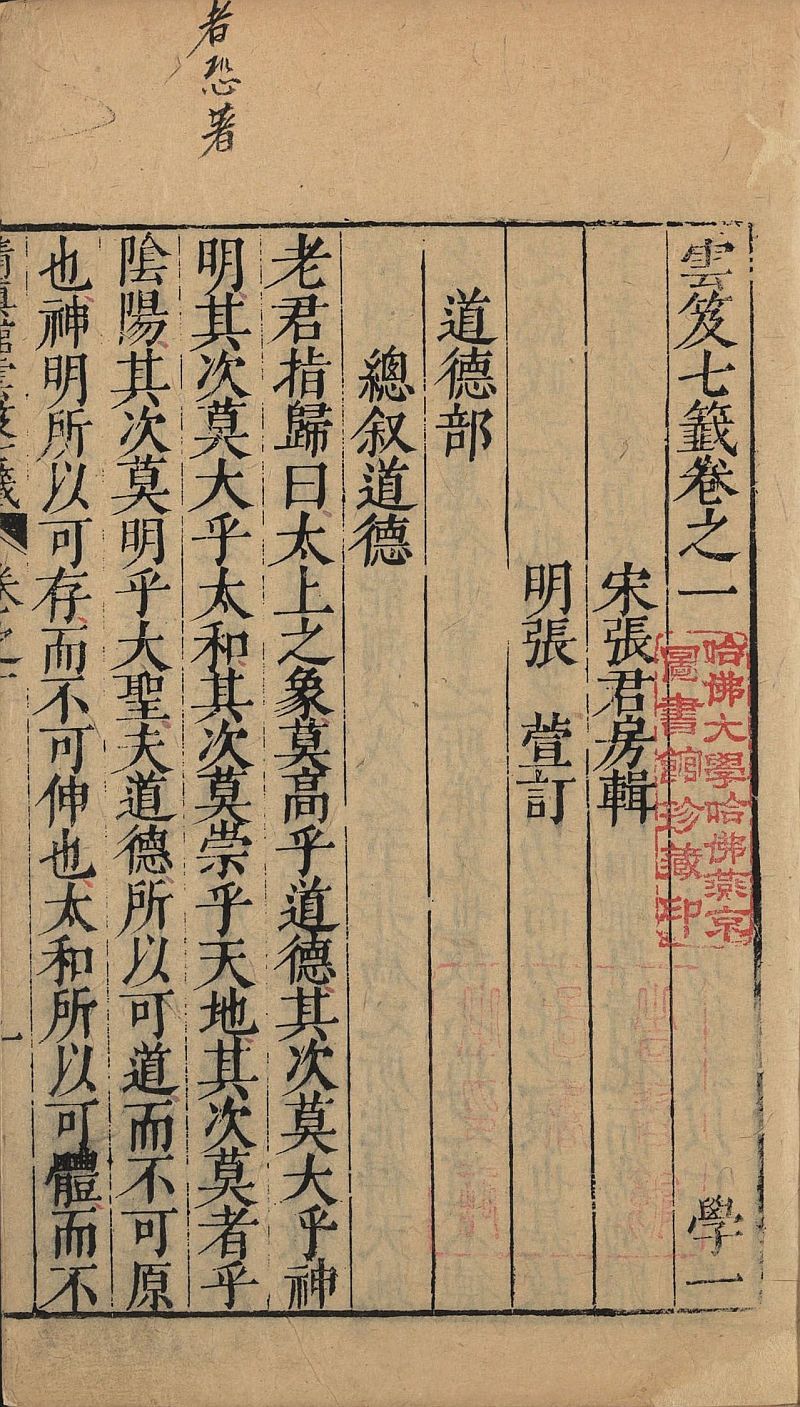 者恐著
雲笈七籤卷之一
學一
宋張君房輯
明張 萱訂
道德部
總叙道德
老君指歸曰太上之象莫高乎道德其次莫大乎神
明其次莫大乎太和其次莫崇乎天地其次莫者乎
陰陽其次莫明乎大聖夫道德所以可道而不可原
也神明所以可存而不可伸也太和所以可體而不
哈佛大學哈佛燕京
圖書館珍藏印